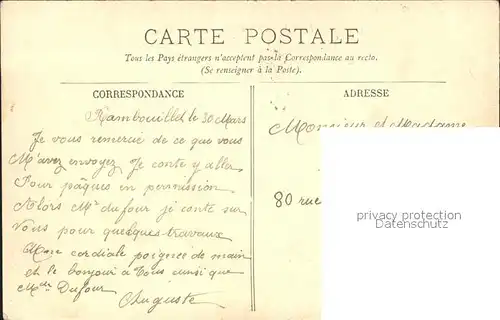 CARTE POSTALE
Tous les Pays étrangers n'acceptent pas la Correspondance au recto.
(Se renseigner à la Poste).
CORRESPONDANCE
Rambouillet le 30 Mars
Je vous remercie de ce que vous
M'avez envoyez Je conte y aller
Pour pâques en permission
Alors Mr dufour je conte sur
Vous pour quelques travaux
cordiale poignée de main
et le bonjour à Tous ainsi que
Mde Dufour
Auguste
ADRESSE
Monsieur et Madame
80 rue
privacy protection
Datenschutz